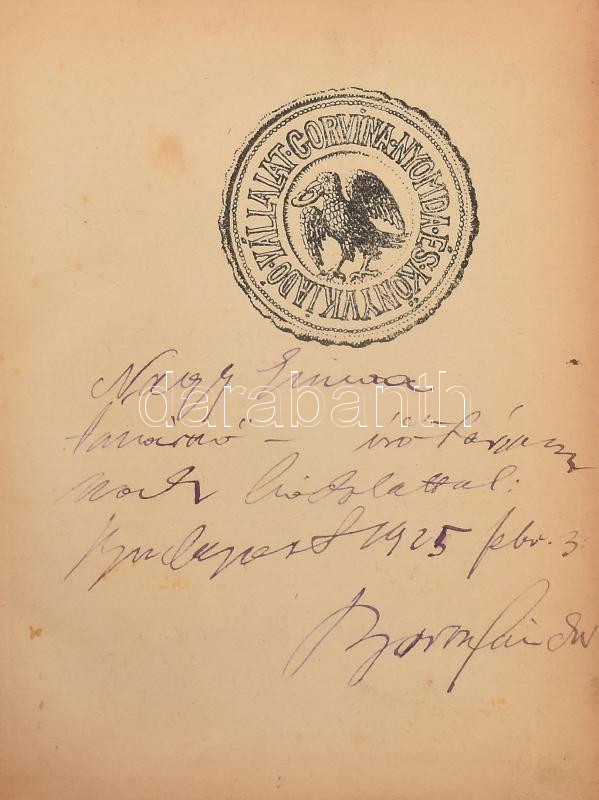 CORVINA·NYOMDA·ÉS·KÖNYVKIADÓ·VÁLLALAT·
Nagy Emma
tanárnő – írótársam
nak tisztelettel:
Budapest 1925 febr. 3.
darabanth